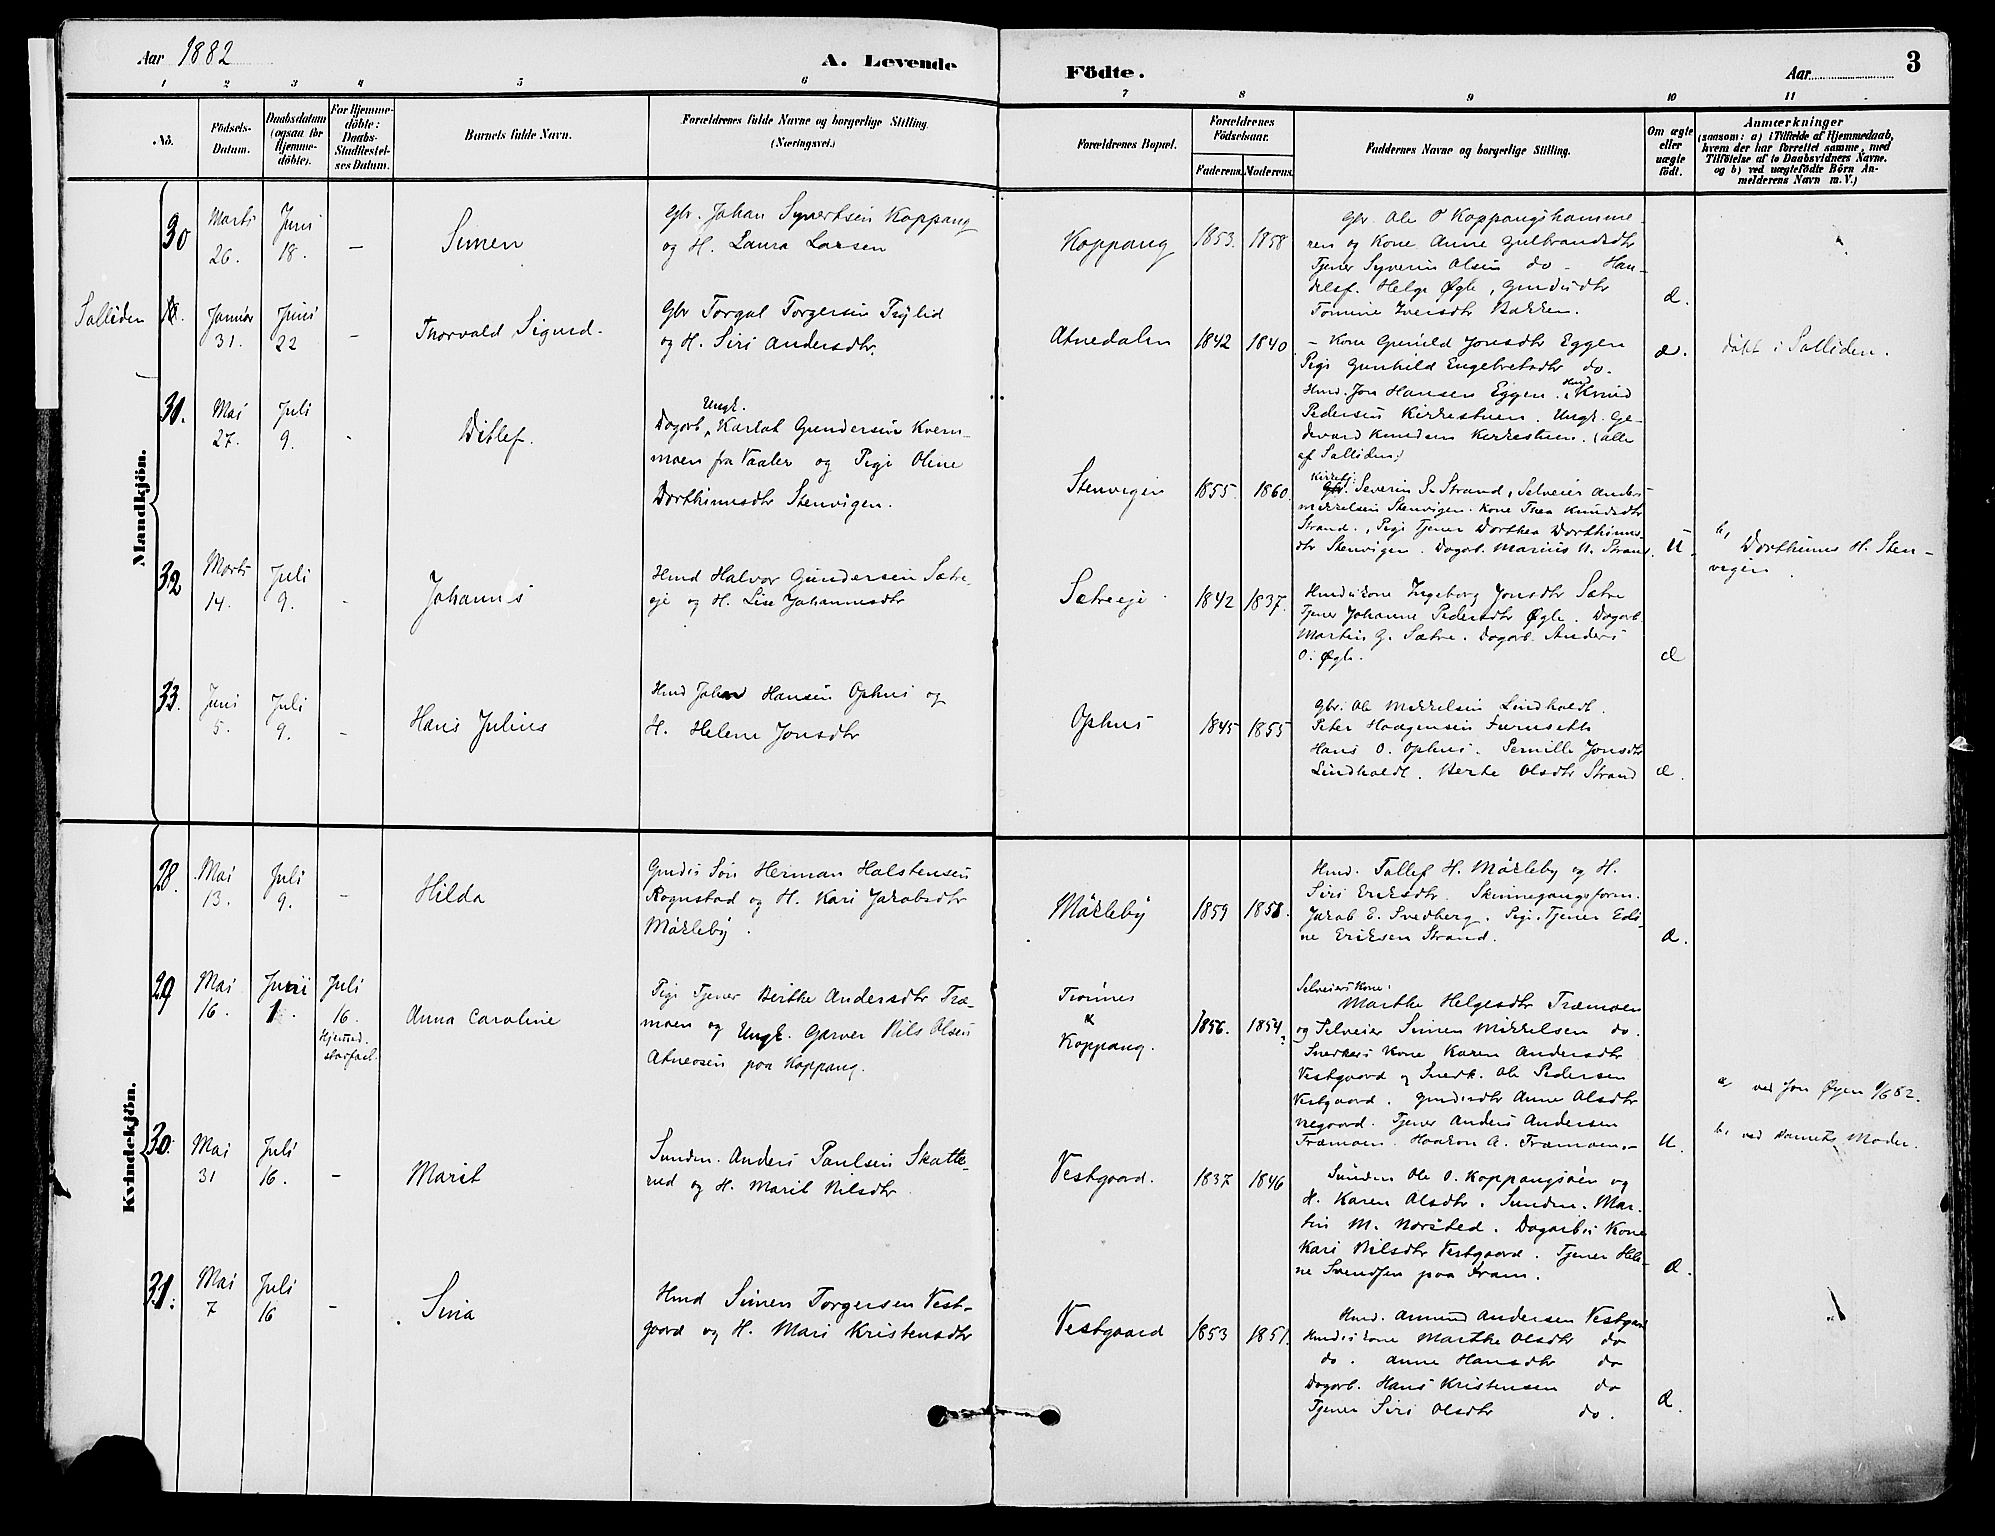 Aar 1882
A. Levende
Födte.
Aar
3
1 2 3 4 5 6 7 8 9 10 11
No.
Födsels-
Datum.
Daabsdatum
(ogsaa for
Hjemme-
döbte).
For Hjemme-
döbte:
Daabs-
Stadfæstel-
ses Datum.
Barnets fulde Navn.
Forældrenes fulde Navne og borgerlige Stilling
(Næringsvei.)
Forældrenes Bopæl.
Forældrenes
Födselsaar.
Faderens. Moderens.
Faddernes Navne og borgerlige Stilling.
Om ægte
eller
uægte
födt.
Anmærkninger
(saasom: a) i Tilfælde af Hjemmedaab,
hvem der har forrettet samme, med
Tilföielse af to Daabsvidners Navne.
og b) ved uægtefödte Börn An-
melderens Navn m. V.)
Mandkjön.
30
Marts
26.
Juni
18.
–
Simen
Gbr. Johan Syvertsen Koppang
og H. Laura Larsen
Koppang
1853. 1858
Gbr. Ole O Koppangshamme-
ren og Kone Anne Gulbrandsdtr
Tjener Syverin Olsen do – Han-
delsf. Helge Øgle, Gmdsdtr
Tomine Iversdtr Bakken.
æ.
Solliden
Januar
31.
Juni
22
–
Thorvald Sigurd.
Gbr Torgal Torgersen
og H. Siri Andersdtr.
Atnedalen
1842 1840
– Kone Gunild Jonsdtr Eggen
Pige Gunhild Engebretsdtr do.
Hmd. Jon Hansen Eggen.
Pedersen Kirkestuen. Ungk.
Knudsen Kirkestuen. (alle
af Solliden)
æ.
døbt i Solliden.
31.
Mai
27.
Juli
9.
-
Ditlef.
Ungk.
Dagarb. Karlot Gundersen Kvern-
moen fra Vaaler og Pige Oline
Dorthinusdtr Stenvigen.
Stenvigen
1855. 1860.
Severin S. Strand, Selveier Anders
Mikkelsen Stenvigen. Kone Thea Knudsdtr
Strand., Pige Tjener Dorthea Dorthinus-
dtr Stenvigen. Dagarb. Marius U. Strand.
U.
b, Dorthinus H. Sten-
vigen.
32
Marts
14.
Juli
9.
-
Johannes
Hmd Halvor Gundersen Sætre-
eje og H. Lise Johannesdtr
Sætreeje
1842 1837.
Hmdskone Ingeborg Jonsdtr Sætre
Tjener Johanne Pedersdtr Øgle. Dagarb.
Martin G. Sætre. Dagarb. Anders
O. Øgle.
æ
33.
Juni
5.
Juli
9.
-
Hans Julius
Hmd Johan Hansen Ophus og
H. Helene Jonsdtr
Ophus
1845 1855
Gbr. Ole Mikkelsen Lindholdt.
Peter Haagensen Furuseth
Hans O. Ophus. Pernille Jonsdtr
Lindholdt. Berte Olsdtr Strand
æ.
Kvindekjön.
28.
Mai
13.
Juli
9.
–
Hilda
Gmds Søn Herman Halstensen
Rognstad og H. Kari Jakobsdtr
Mörleby.
Mörleby
1859 1858.
Hmd. Tollef H. Mörleby og H.
Siri Eriksdtr. Skinnegangsform.
Jakob E. Svedberg. Pige. Tjener Edi-
ne Eriksen Strand.
æ.
29
Mai
16.
Juni
1.
Juli
16.
Hjemmed.
stadfæst.
Anna Caroline
Pige Tjener Berthe Andersdtr Træ-
moen og Ungk. Garver Nils Olsen
Atneosen paa Koppang.
Trønnes
&
Koppang.
1856. 1854.
Selveiers Kone:
Marthe Helgesdtr Træmoen
og Selveier Simen Mikkelsen do.
Snedkers Kone Karen Andersdtr
Vestgaard og Snedk. Ole Pedersen
Vestgaard. Gmdsdtr Anne Olsdtr
Negaard. Tjener Anders Andersen
Træmoen. Haakon A. Træmoen. –
U.
a, ved Jon Øyen 1/6 82.
b, ved Barnets Moder.
30.
Mai
31
Juli
16.
–
Marit
Inderst. Anders Paulsen Skatte-
rud og H. Marit Nilsdtr.
Vestgaard.
1837 1846
Ole O. Koppangsøen og
H. Karen Olsdtr. Mar-
tin M. Norsted. Dagarbs Kone
Kari Nilsdtr Vestgaard. Tjener Hele-
ne Svendsen paa Fram.
æ.
31.
Mai
7
Juli
16
–
Sina
Hmd Simen Torgersen Vest-
gaard og H. Mari Kristensdtr
Vestgaard
1853 1851.
Hmd. Amund Andersen Vestgaard
Hmdskone Marthe Olsdtr do
do. Anne Hansdtr do
Dagarb. Hans Kristensen do
Tjener Siri Olsdtr do.
æ.